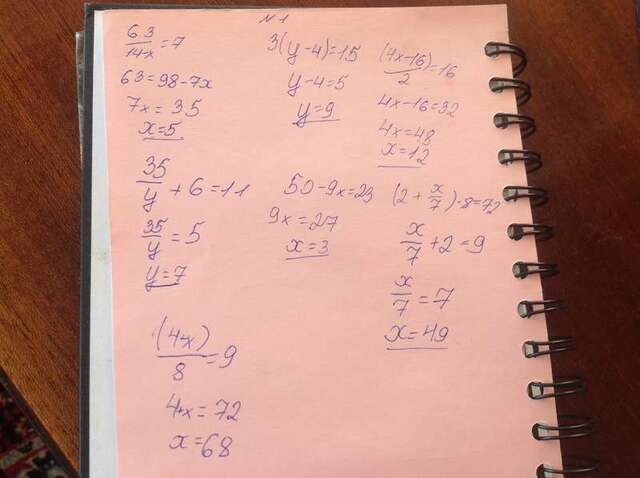 N 1
63/14-x=7
63=98-7x
7x=35
x=5
3(y-4)=15
y-4=5
y=9
(4x-16)/2=16
4x-16=32
4x=48
x=12
35/y+6=11
35/y=5
y=7
50-9x=23
9x=27
x=3
(2+x/7)·8=72
x/7+2=9
x/7=7
x=49
(4+x)/8=9
4+x=72
x=68